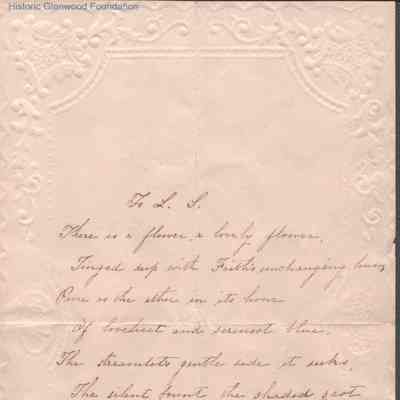 Historic Glenwood Foundation
To L. S.
There is a flower, a lovely flower,
Tinged deep with Faith's unchanging hue,
Pure as the ether in its hour
Of loveliest and serenest blue.
The streamlets gentle side it seeks,
The silent fount the shaded grot